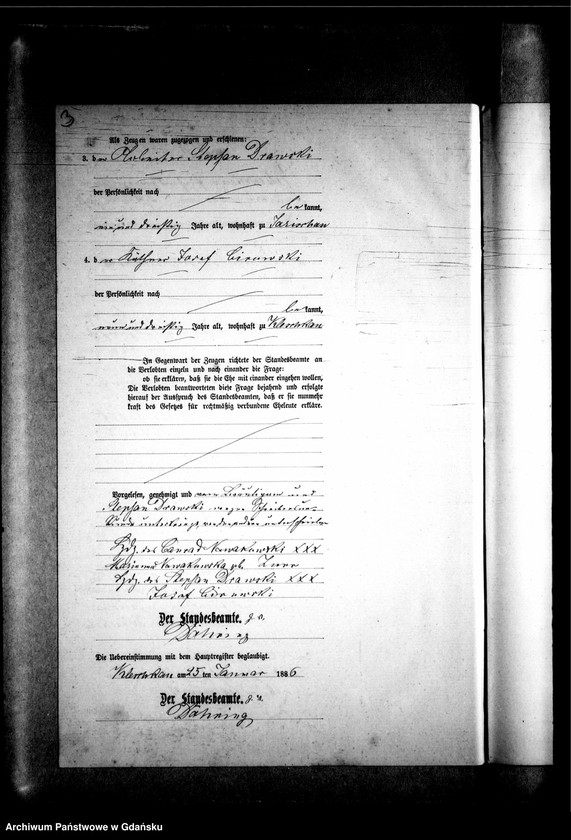 3
Als Zeugen waren zugezogen und erschienen:
3. der Arbeiter Stephan Drawski
der Persönlichkeit nach
bekannt,
neun und dreißig Jahre alt, wohnhaft zu
4. der Käthner Josef Cirowski
der Persönlichkeit nach
bekannt,
neun und dreißig Jahre alt, wohnhaft zu Kleschkau
In Gegenwart der Zeugen richtete der Standesbeamte an
die Verlobten einzeln und nach einander die Frage:
ob sie erklären, daß sie die Ehe mit einander eingehen wollen,
Die Verlobten beantworteten diese Frage bejahend und erfolgte
hierauf der Ausspruch des Standesbeamten, daß er sie nunmehr
kraft des Gesetzes für rechtmäßig verbundene Eheleute erkläre.
Vorgelesen, genehmigt und vom Bräutigam und
Stephan Drawski wegen Schreibens-
unterkreuzt, unterschrieben
Hdz. des Conrad Nowakowski XXX
Marianna Nowakowska geb.
Hdz. des Stephan Drawski XXX
Josef Cirowski
Der Standesbeamte.
Döhring
Die Uebereinstimmung mit dem Hauptregister beglaubigt.
Kleschkau am 25 ten Januar 1886
Der Standesbeamte.
Döhring
Archiwum Państwowe w Gdańsku